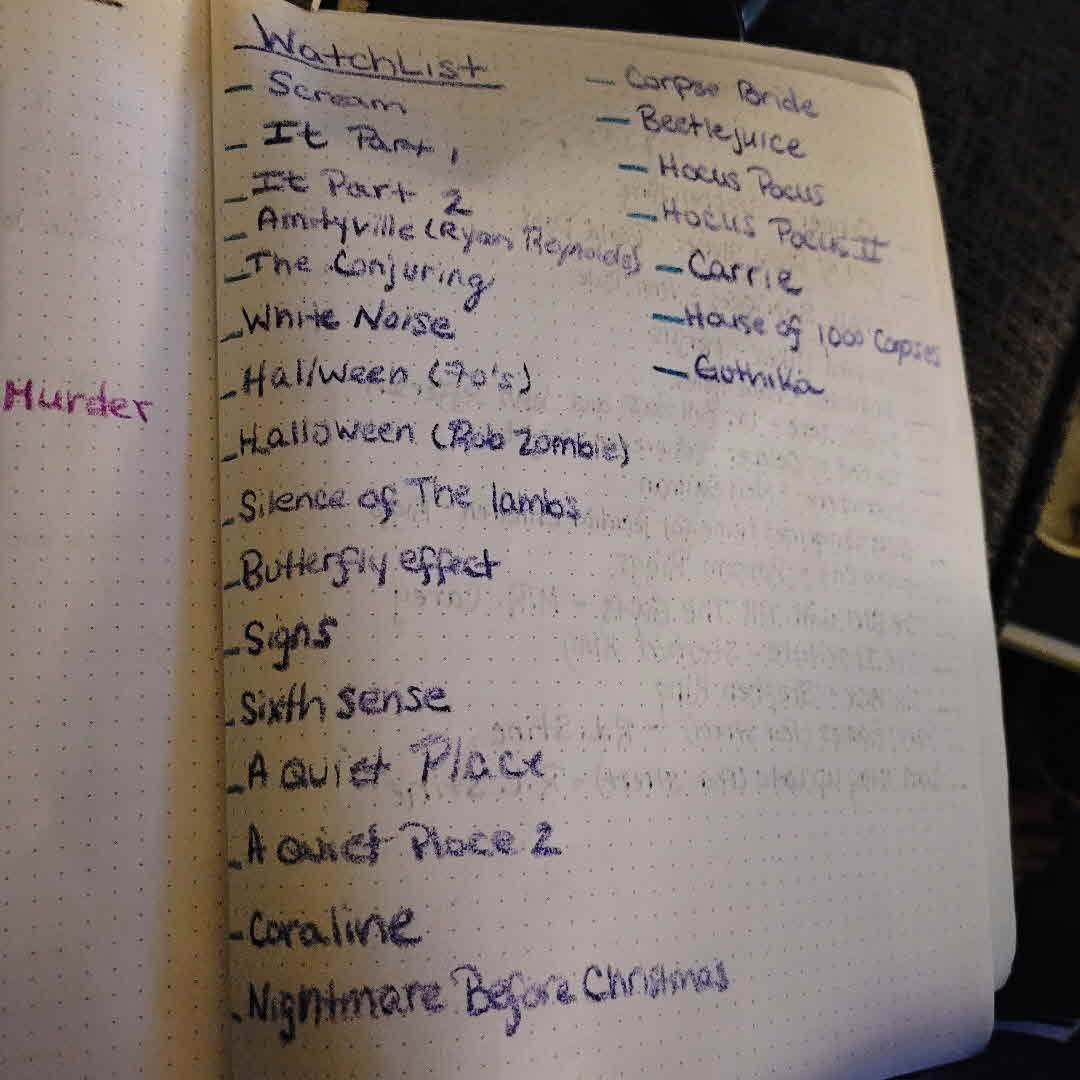 WatchList
- Scream
- It Part 1
- It Part 2
- Amityville (Ryan Reynolds)
- The Conjuring
- White Noise
- Halloween (70's)
- Halloween (Rob Zombie)
- Silence of The lambs
- Butterfly effect
- Signs
- Sixth sense
- A Quiet Place
- A Quiet Place 2
- Coraline
- Nightmare Before Christmas
- Corpse Bride
- Beetlejuice
- Hocus Pocus
- Hocus Pocus II
- Carrie
- House of 1000 Corpses
- Gothika
Murder